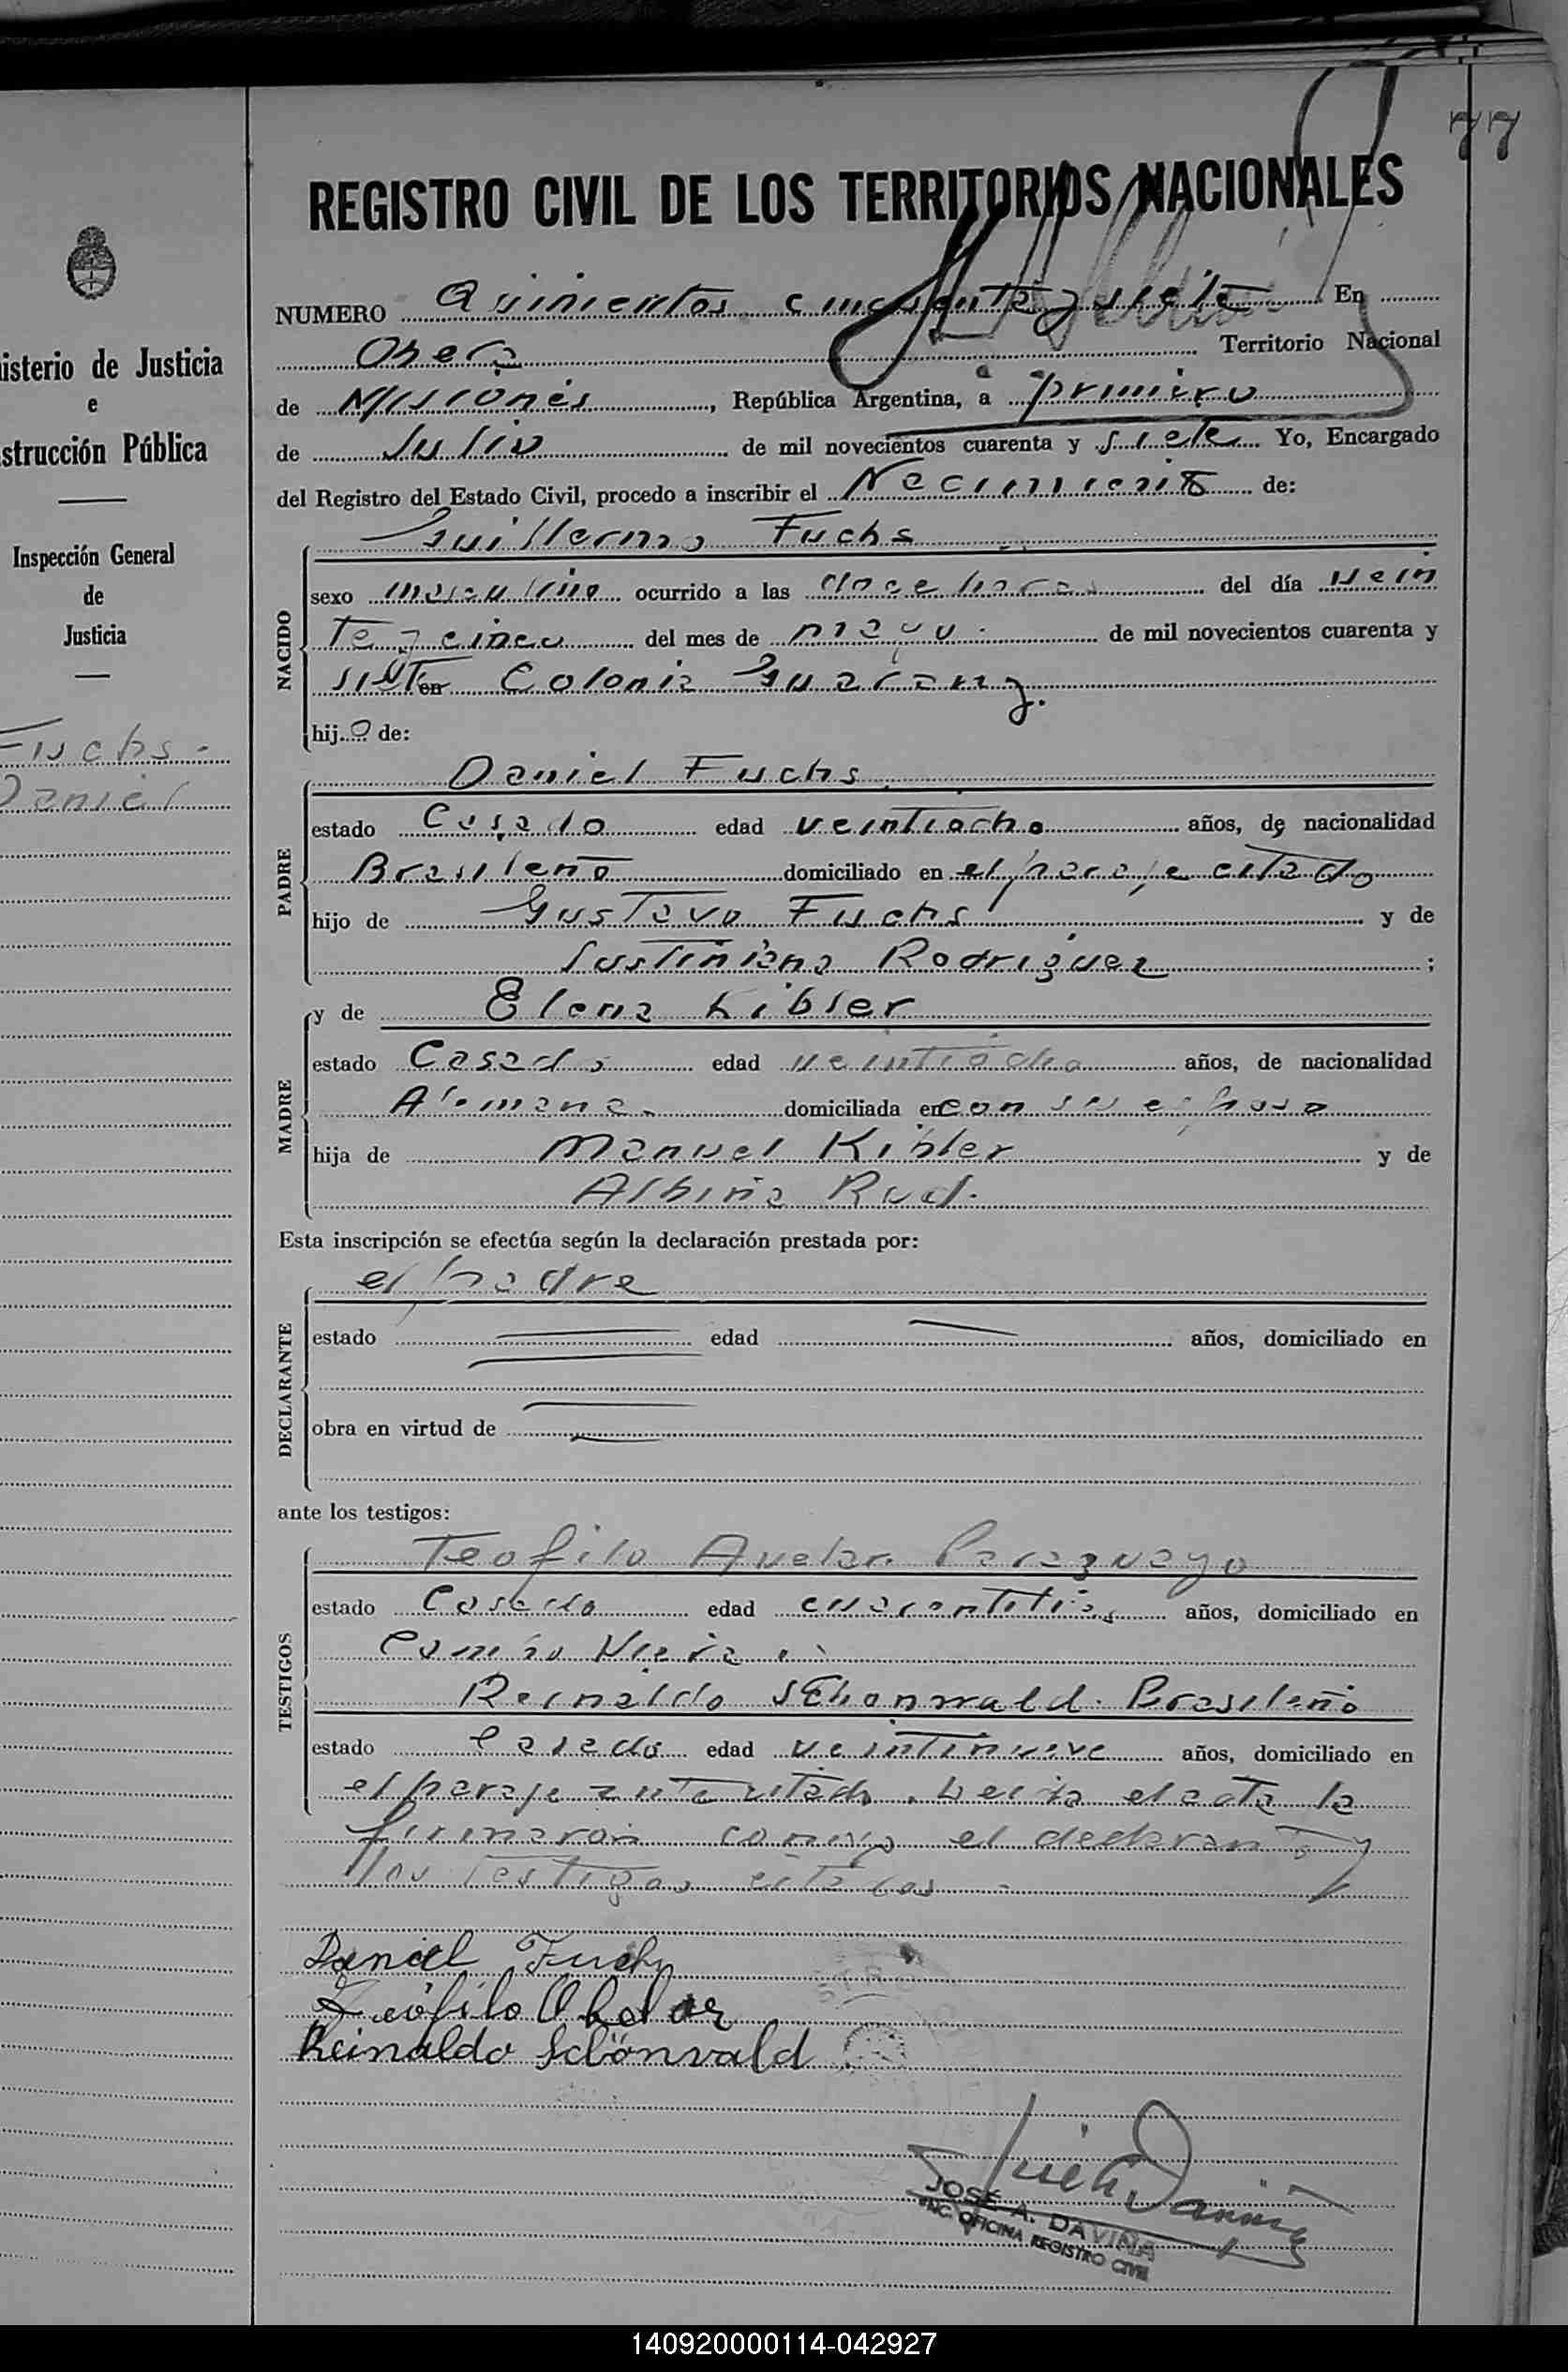 77
REGISTRO CIVIL DE LOS TERRITORIOS NACIONALES
NUMERO Quinientos cincuenta y siete En
Oberá Territorio Nacional
de Misiones, República Argentina, a primero
de Julio de mil novecientos cuarenta y siete Yo, Encargado
del Registro del Estado Civil, procedo a inscribir el Nacimiento de:
NACIDO
Guillermo Fuchs
sexo masculino ocurrido a las doce horas del día vein
te y cinco del mes de mayo de mil novecientos cuarenta y
siete en Colonia Guarany.
hijo de:
PADRE
Daniel Fuchs
estado Casado edad veintiocho años, de nacionalidad
Brasileño domiciliado en el paraje citado
hijo de Gustavo Fuchs y de
Justiniana Rodriguez ;
MADRE
y de Elena Kibler
estado Casada edad veintiocho años, de nacionalidad
Alemana domiciliada en con su esposo
hija de Manuel Kibler y de
Albina Rud.
Esta inscripción se efectúa según la declaración prestada por:
DECLARANTE
el padre
estado edad años, domiciliado en
obra en virtud de
ante los testigos:
TESTIGOS
Teofilo Avelar Paraguayo
estado Casado edad años, domiciliado en
Campo Viera
Reinaldo Schonwald Brasileño
estado Casado edad veintinueve años, domiciliado en
el paraje ante citado. el acta la
firmaron conmigo el declarante y
los testigos citados
Daniel Fuchs
Teófilo
Reinaldo Schönwald
JOSÉ A. DAVIÑA
ENC. OFICINA REGISTRO CIVIL
isterio de Justicia
e
strucción Pública
Inspección General
de
Justicia
Fuchs
Daniel
140920000114-042927